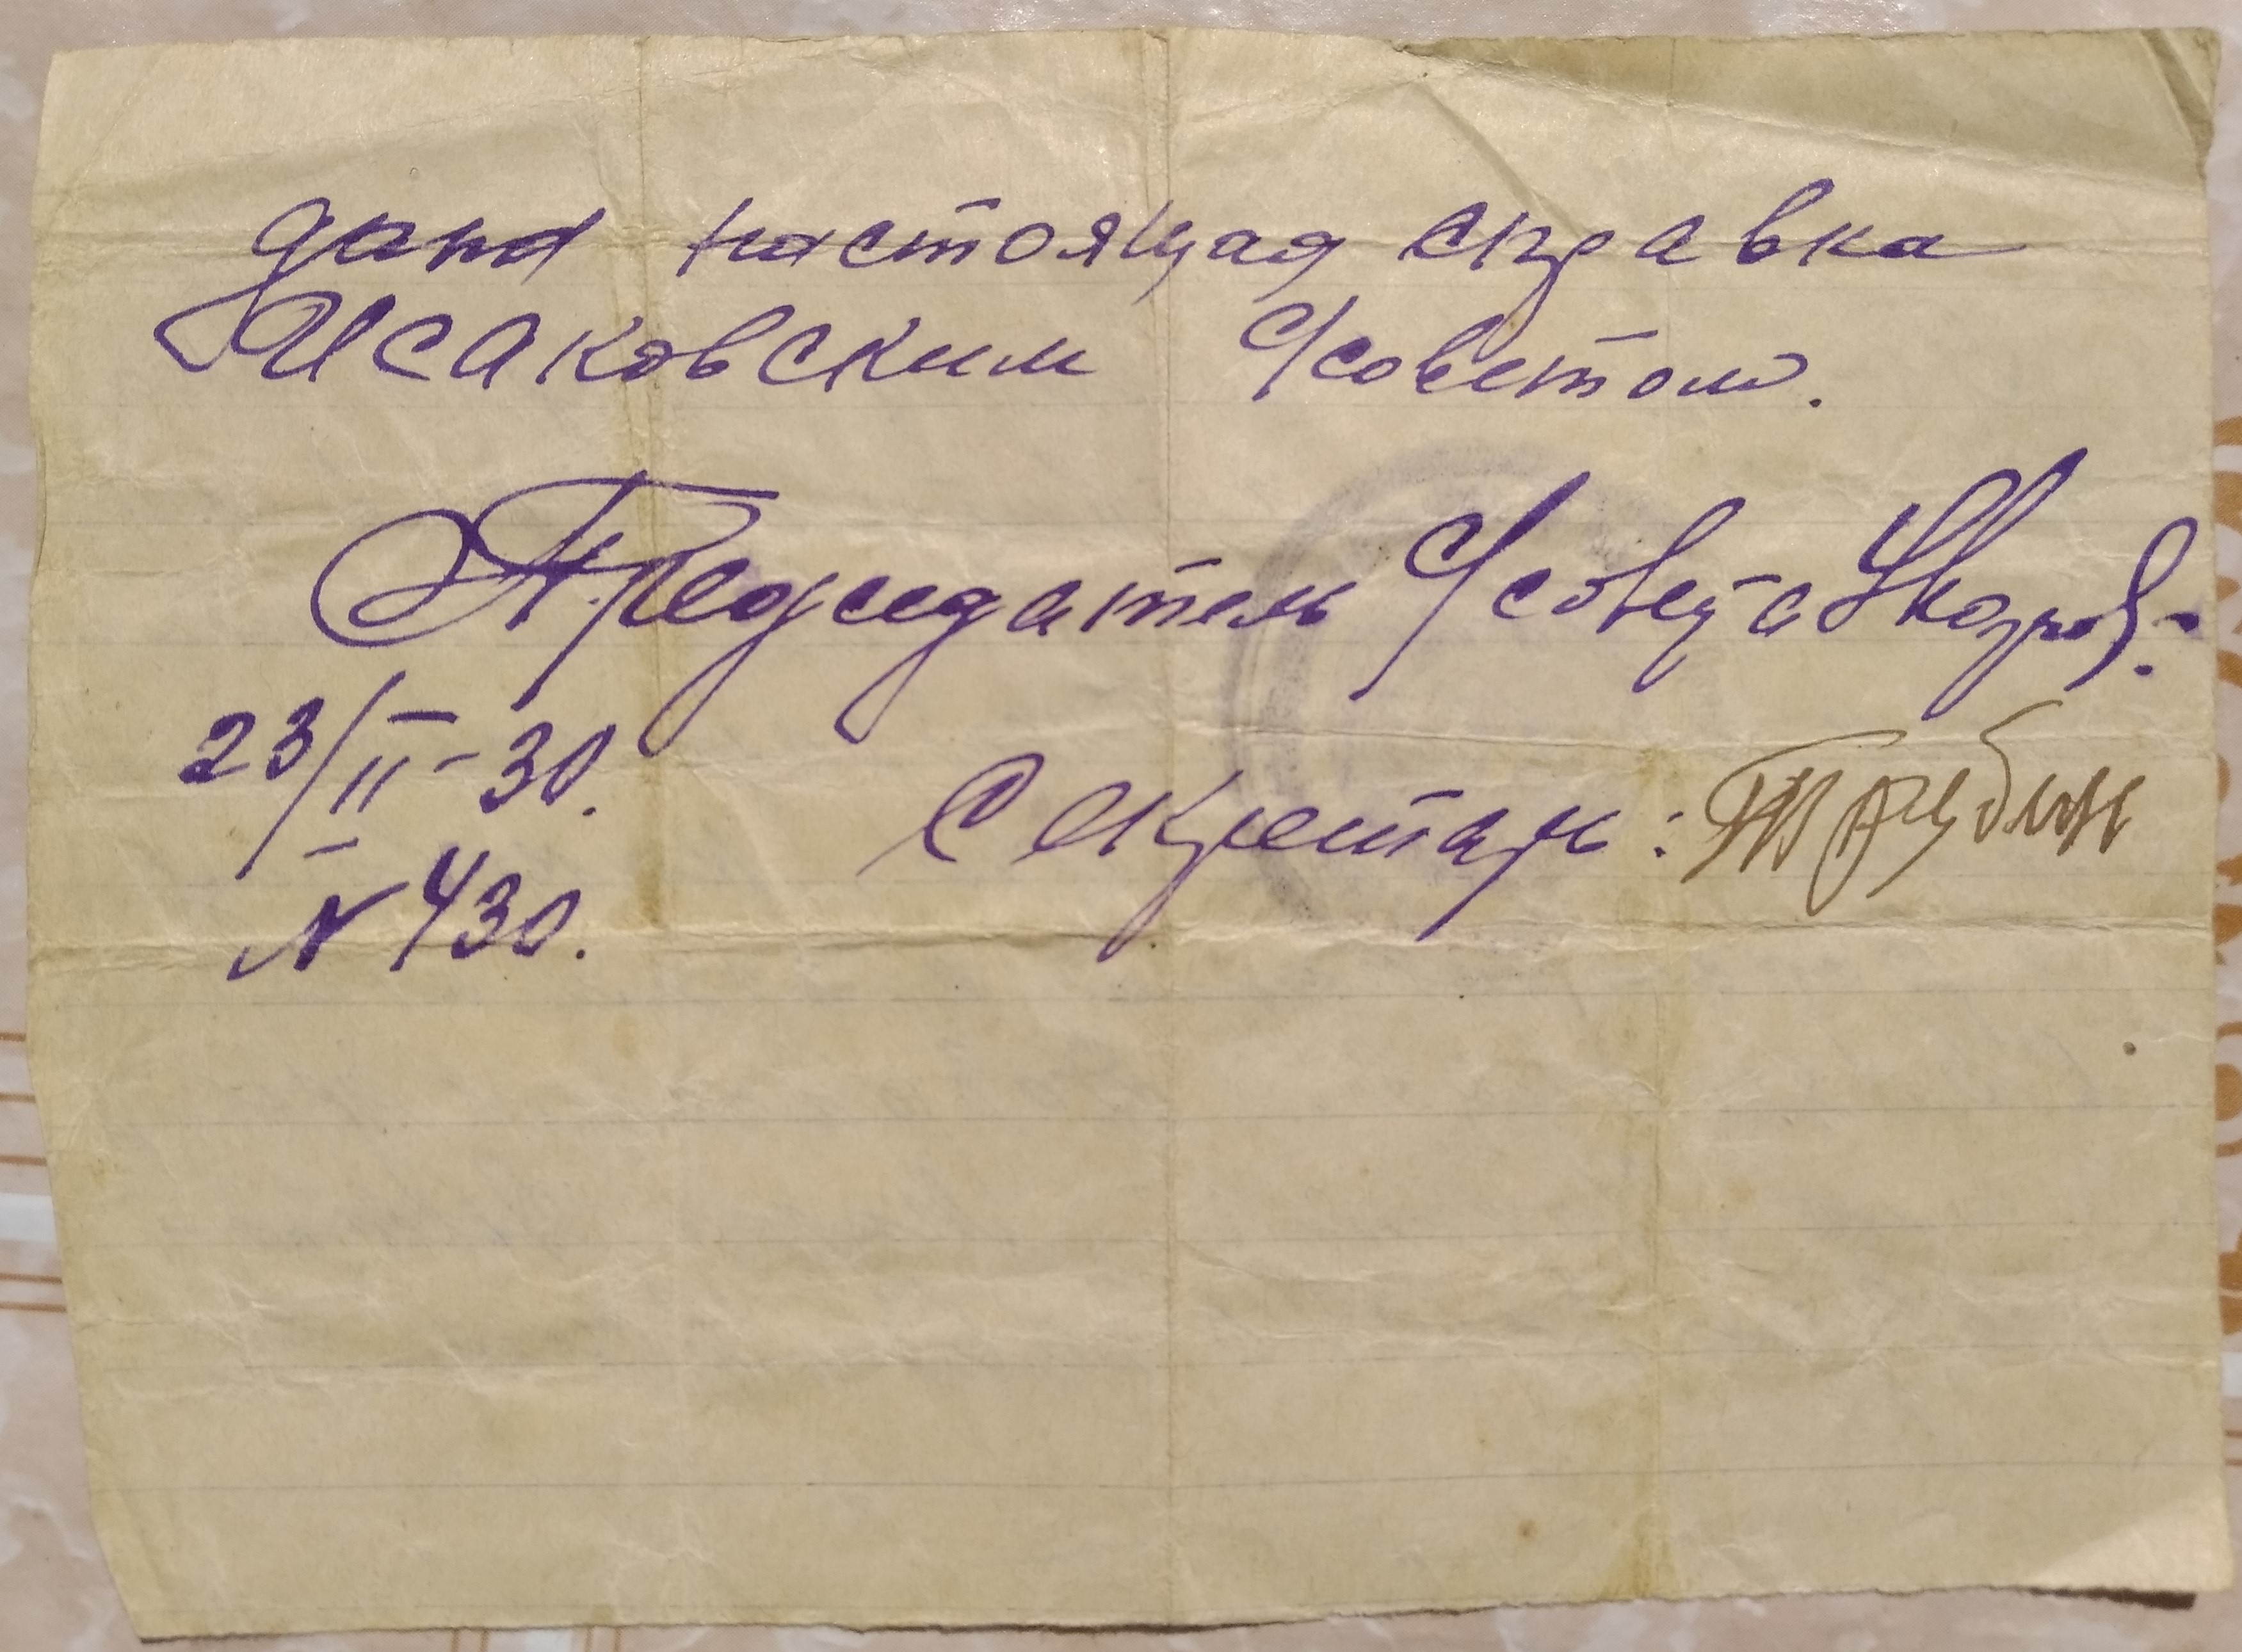 дана настоящая справка
Исаковским С/советом.
Председатель С/совета
23/II-30.
Секретарь: Трубин
№ 430.